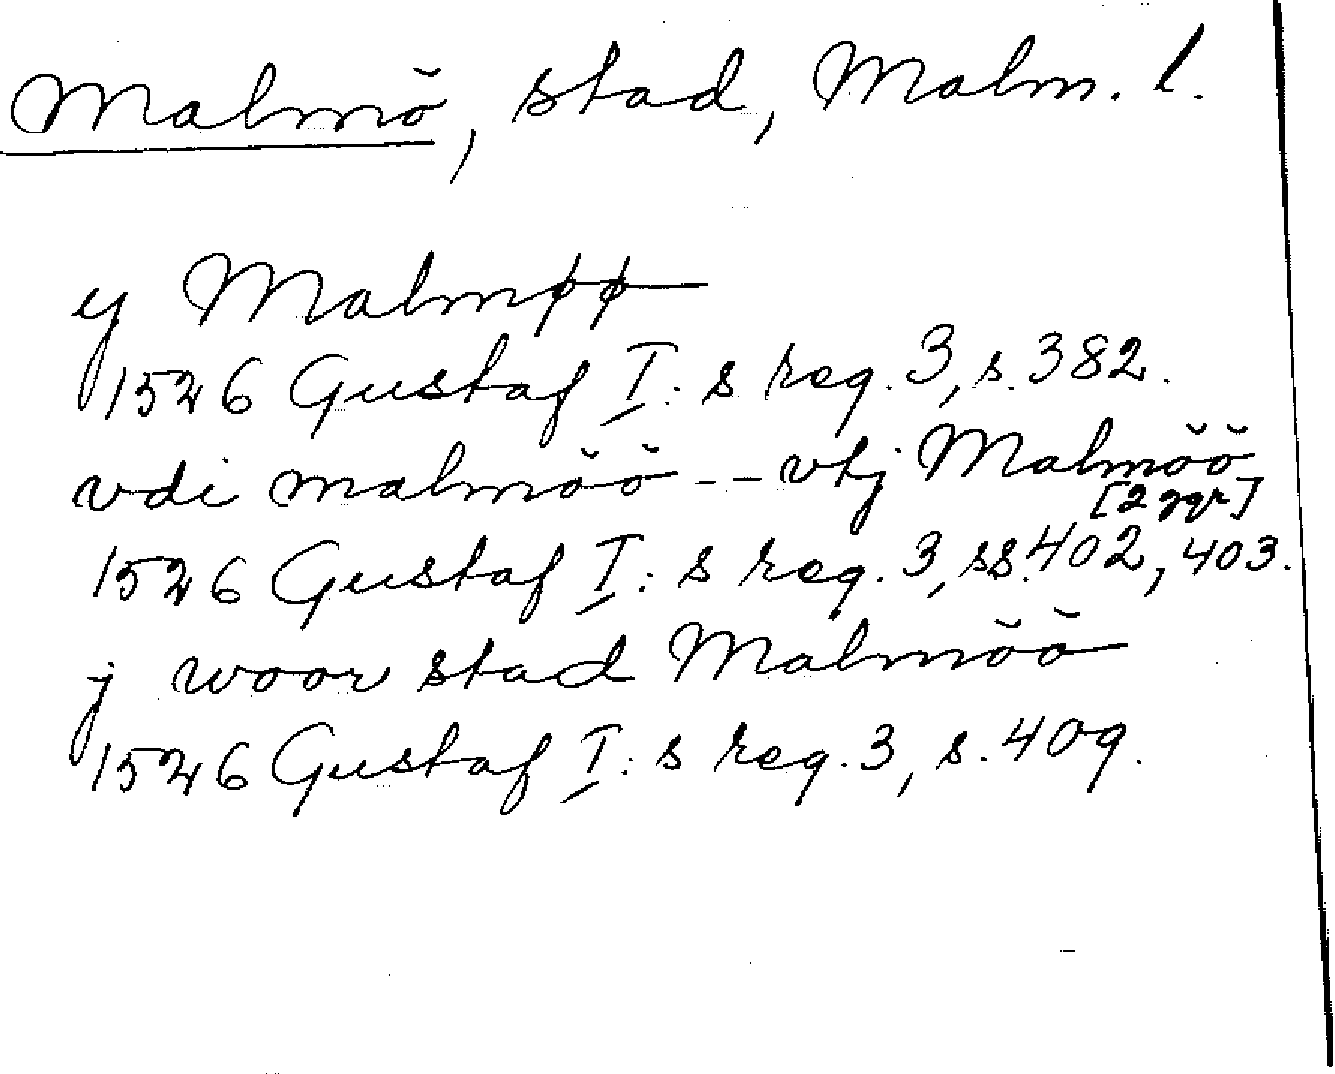 Malmö, stad, Malm. l.
y Malmøø
1526 Gustaf I:s reg. 3, s. 382.
vdi malmöö -- vtj Malmöö
[2 ggr]
1526 Gustaf I:s reg. 3, ss. 402, 403.
j woor stad Malmöö
1526 Gustaf I:s reg. 3, s. 409.